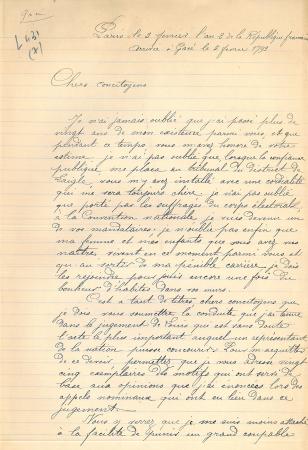 L 431
(7)
Paris le 2 février l'an 2 de la République
à Gacé le 5 février 1793
Chers concitoyens
Je n'ai jamais oublié que j'ai passé plus de
vingt ans de mon existence parmi vous et que
pendant ce temps vous m'avez honoré de votre
estime. Je n'ai pas oublié que, lorsque la confiance
publique me plaça au tribunal du District de
Laigle vous m'y avez installé avec une cordialité
qui me sera toujours chère. Je n'ai pas oublié
que porté par les suffrages du corps électoral
à la Convention nationale, je suis devenu un
de vos mandataires. Je n'oublie pas enfin que
ma femme et mes enfants que vous avez vus
naître, vivent en ce moment parmi vous et
qu'au sortir de ma pénible carrière je dois
les rejoindre pour jouir encore une fois du
bonheur d'habiter dans vos murs.
C'est à tant de titres, chers concitoyens que
je dois vous soumettre la conduite que j'ai tenue
dans le jugement de Louis qui est sans doute
l'acte le plus important auquel un représentant
de la nation puisse concourir. Pour m'acquitter
de ce devoir, permettez que je vous adresse vingt
cinq exemplaires des motifs qui ont servi de
base aux opinions que j'ai énoncées lors des
appels nominaux qui ont eu lieu dans ce
jugement.
Vous y verrez que je me suis moins attaché
à la facilité de punir un grand coupable